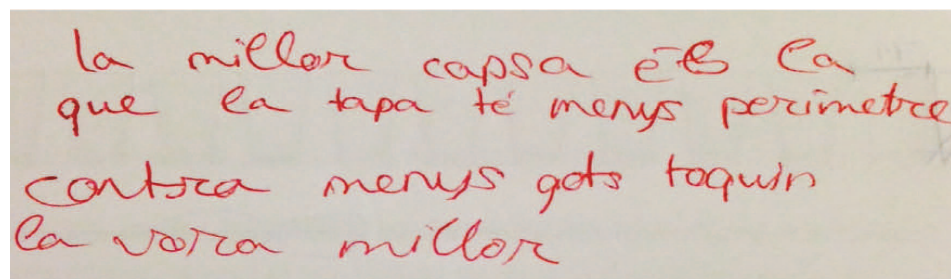 la millor capsa és la
que la tapa té menys perímetre
contra menys gots toquin
la vora millor